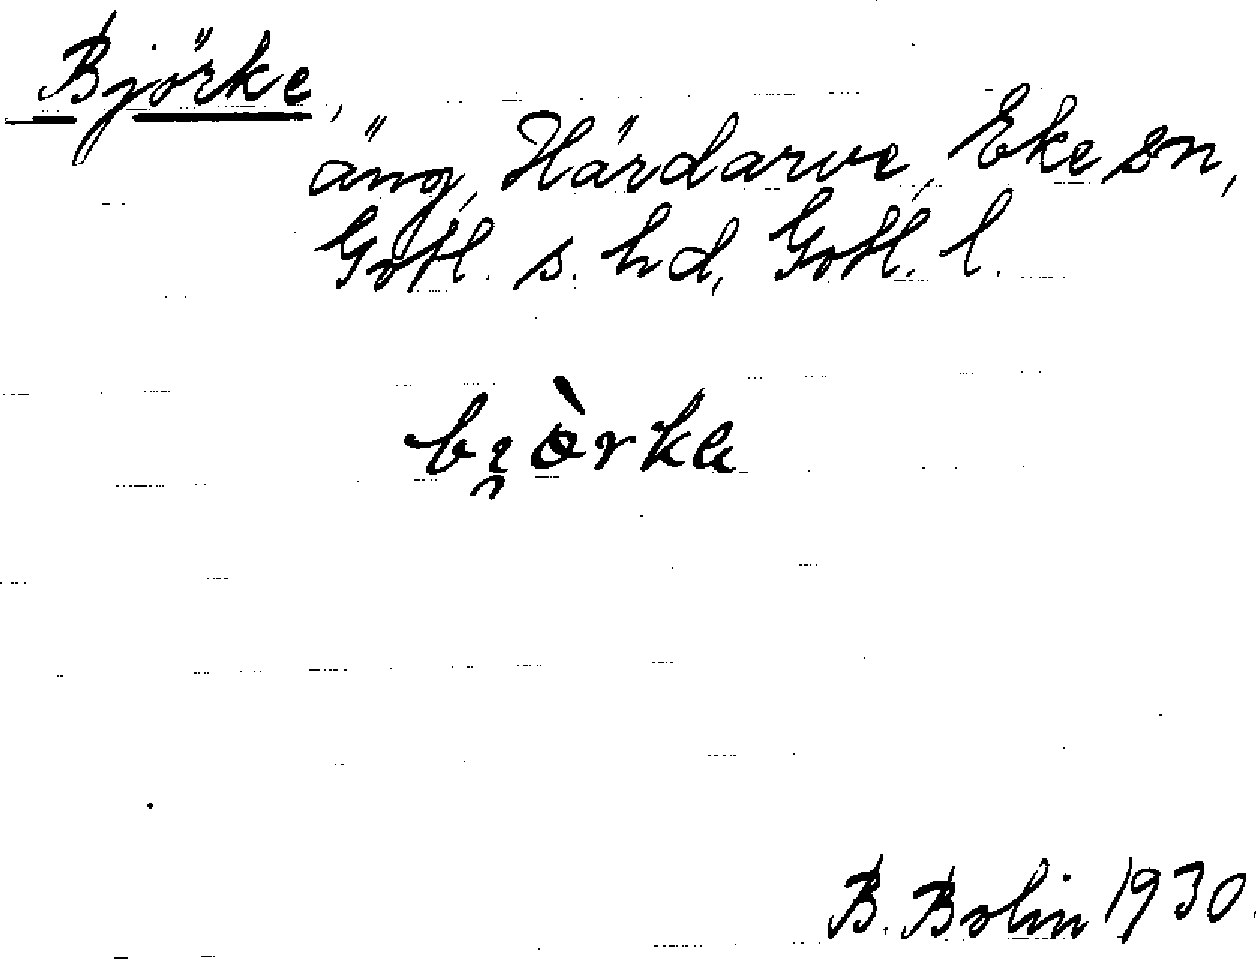 Björke,
äng, Härdarve, Eke sn,
Gotl. s. hd, Gotl. l.
bi̯òrka
B. Bolin 1930.